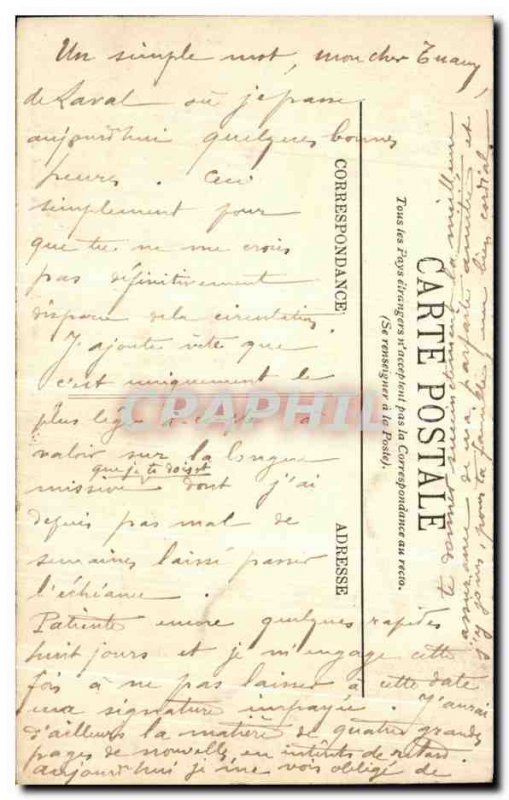 Un simple mot, mon cher
de Laval où je passe
aujourd'hui quelques bonnes
heures. Ceci
simplement pour
que tu ne me crois
pas définitivement
disparu de la circulation.
J'ajoute vite que
c'est uniquement le
plus léger à-compte à
valoir sur la longue
que je te dois et
missive dont j'ai
depuis pas mal de
semaines laissé passer
l'échéance.
Patiente encore quelques rapides
huit jours et je m'engage cette
fois à ne pas laisser à cette date
ma signature impayée. J'aurai
d'ailleurs la matière de quatre grandes
pages de nouvelles en intérêts de retard.
aujourd'hui je me vois obligé de
te donner succinctement la meilleure
assurance de ma parfaite amitié et
pour ta famille, un bien cordial
CARTE POSTALE
Tous les Pays étrangers n'acceptent pas la Correspondance au recto.
(Se renseigner à la Poste).
CORRESPONDANCE
ADRESSE
CPAPHIL